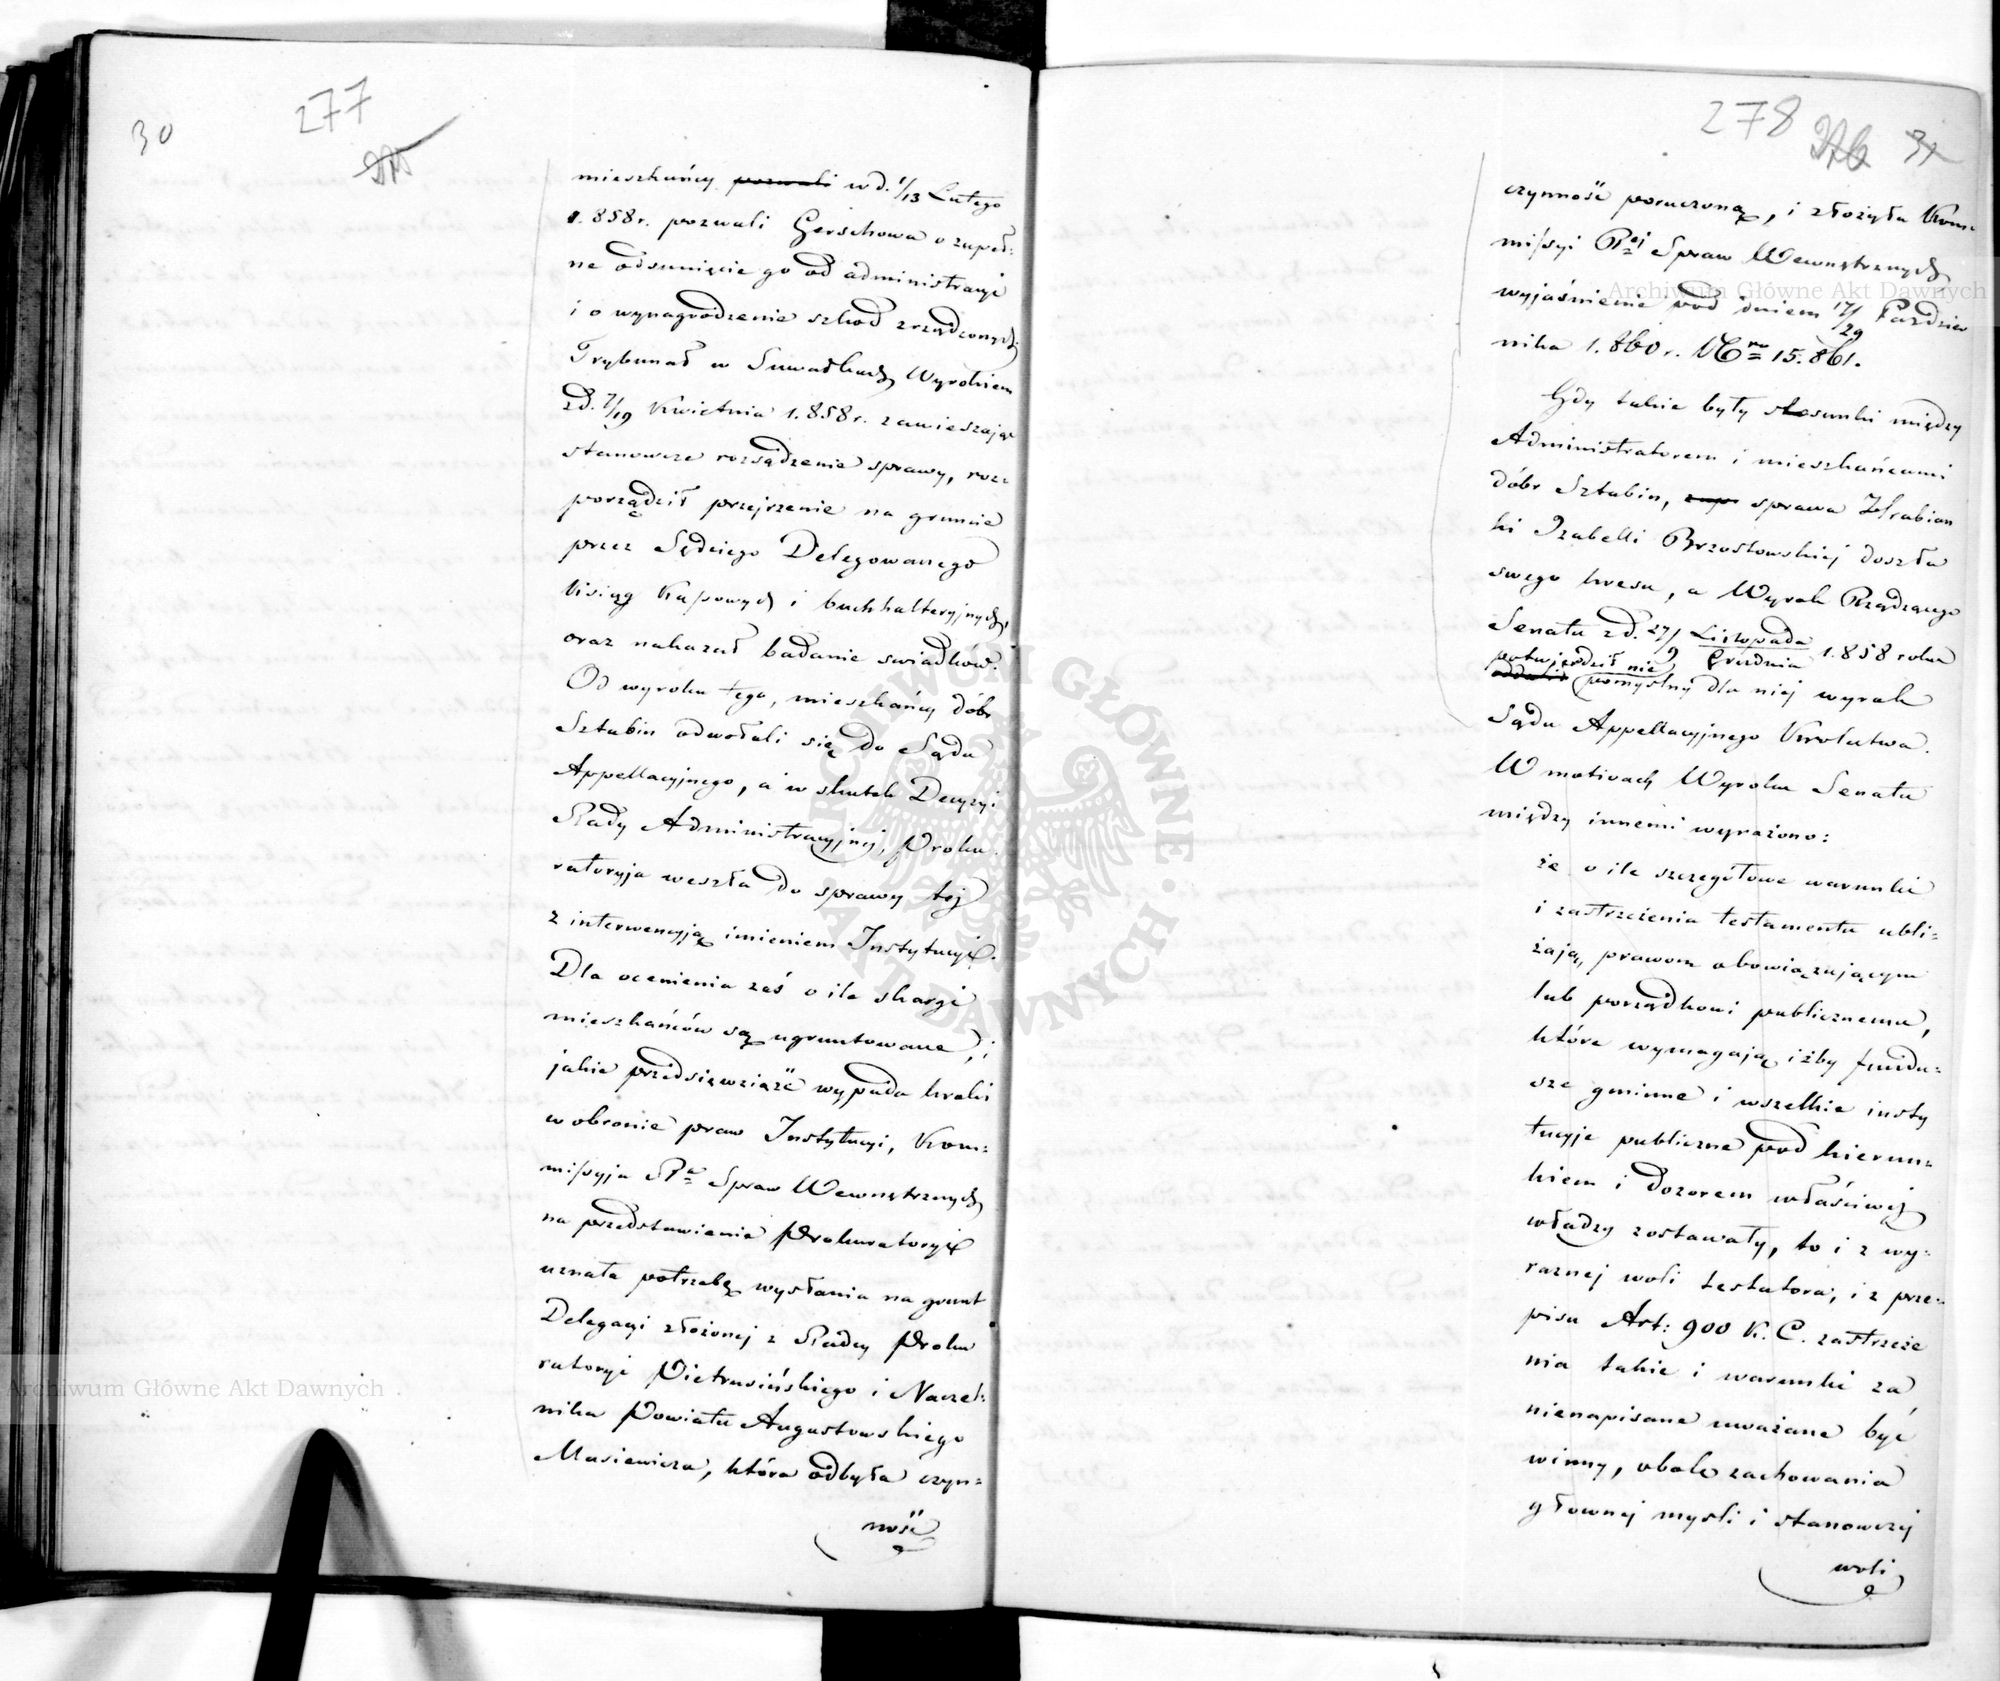 30
277
mieszkańcy pozwali w d. 1/13 Lutego
1.858 r. pozwali Gerschowa o zupeł:
ne odsunięcie go od administracyi
i o wynagrodzenie szkod zrządzonych
Trybunał w Suwałkach Wyrokiem
z d. 7/19 Kwietnia 1.858 r. zawieszając
stanowcze rozsądzenie sprawy, roz:
porządził przejrzenie na gruncie
przez Sędziego Delegowanego
Xsiąg Kassowych i buchhalteryjnych,
oraz nakazał badanie swiadków.
Od wyroku tego, mieszkańcy dóbr
Sztabin odwołali się do Sądu
Appellacyjnego, a w skutek Decyzyi
Rady Administracyjnej, Proku
ratoryja weszła do sprawy tej
z interwencyją imieniem Instytucyi.
Dla ocenienia zaś o ile skargi
mieszkańców są ugruntowane, i
jakie przedsięwziąść wypada kroki
w obronie praw Instytucyi, Kom:
missyja Rª Spraw Wewnętrznych
na przedstawienie Prokuratoryi
uznała potrzebę wysłania na grunt
Delegacyi złożonej z Radcy Proku
ratoryi Pietrusińskiego i Naczel:
nika Powiatu Augustowskiego
Musiewicza, która odbyła czyn:
ność
278
31
czynność poruczoną, i złożyła Kom:
missyi Rej Spraw Wewnętrznych
wyjaśnienie pod dniem 17/29 Paździer
nika 1.860 r. Nro 15.861.
Gdy takie były stosunki między
Administratorem i mieszkańcami
dóbr Sztabin, sprawa Hrabian
ki Izabelli Brzostowskiej doszła
swego kresu, a Wyrok Rządzącego
Senatu z d. 27/9 Listopada/Grudnia 1.858 roku
potwierdził nie pomyslny dla niej wyrok
Sądu Appellacyjnego Królestwa.
W motivach Wyroku Senatu
między innemi wyrażono:
że o ile szczegółowe warunki
i zastrzeżenia testamentu ubli:
żają, prawom obowiązującym
lub porządkowi publicznemu,
które wymagają iżby fundu:
sze gminne i wszelkie insty
tucyje publiczne pod kierun:
kiem i dozorem właściwej
władzy zostawały, to i z wy:
raznej woli testatora, i z prze:
pisu Art: 900 K. C. zastrzeże
nia takie i warunki za
nienapisane uważane być
winny, obok zachowania
głownej mysli i stanowczej
woli
Archiwum Główne Akt Dawnych
Archiwum Główne Akt Dawnych
ARCHIWUM GŁÓWNE
AKT DAWNYCH